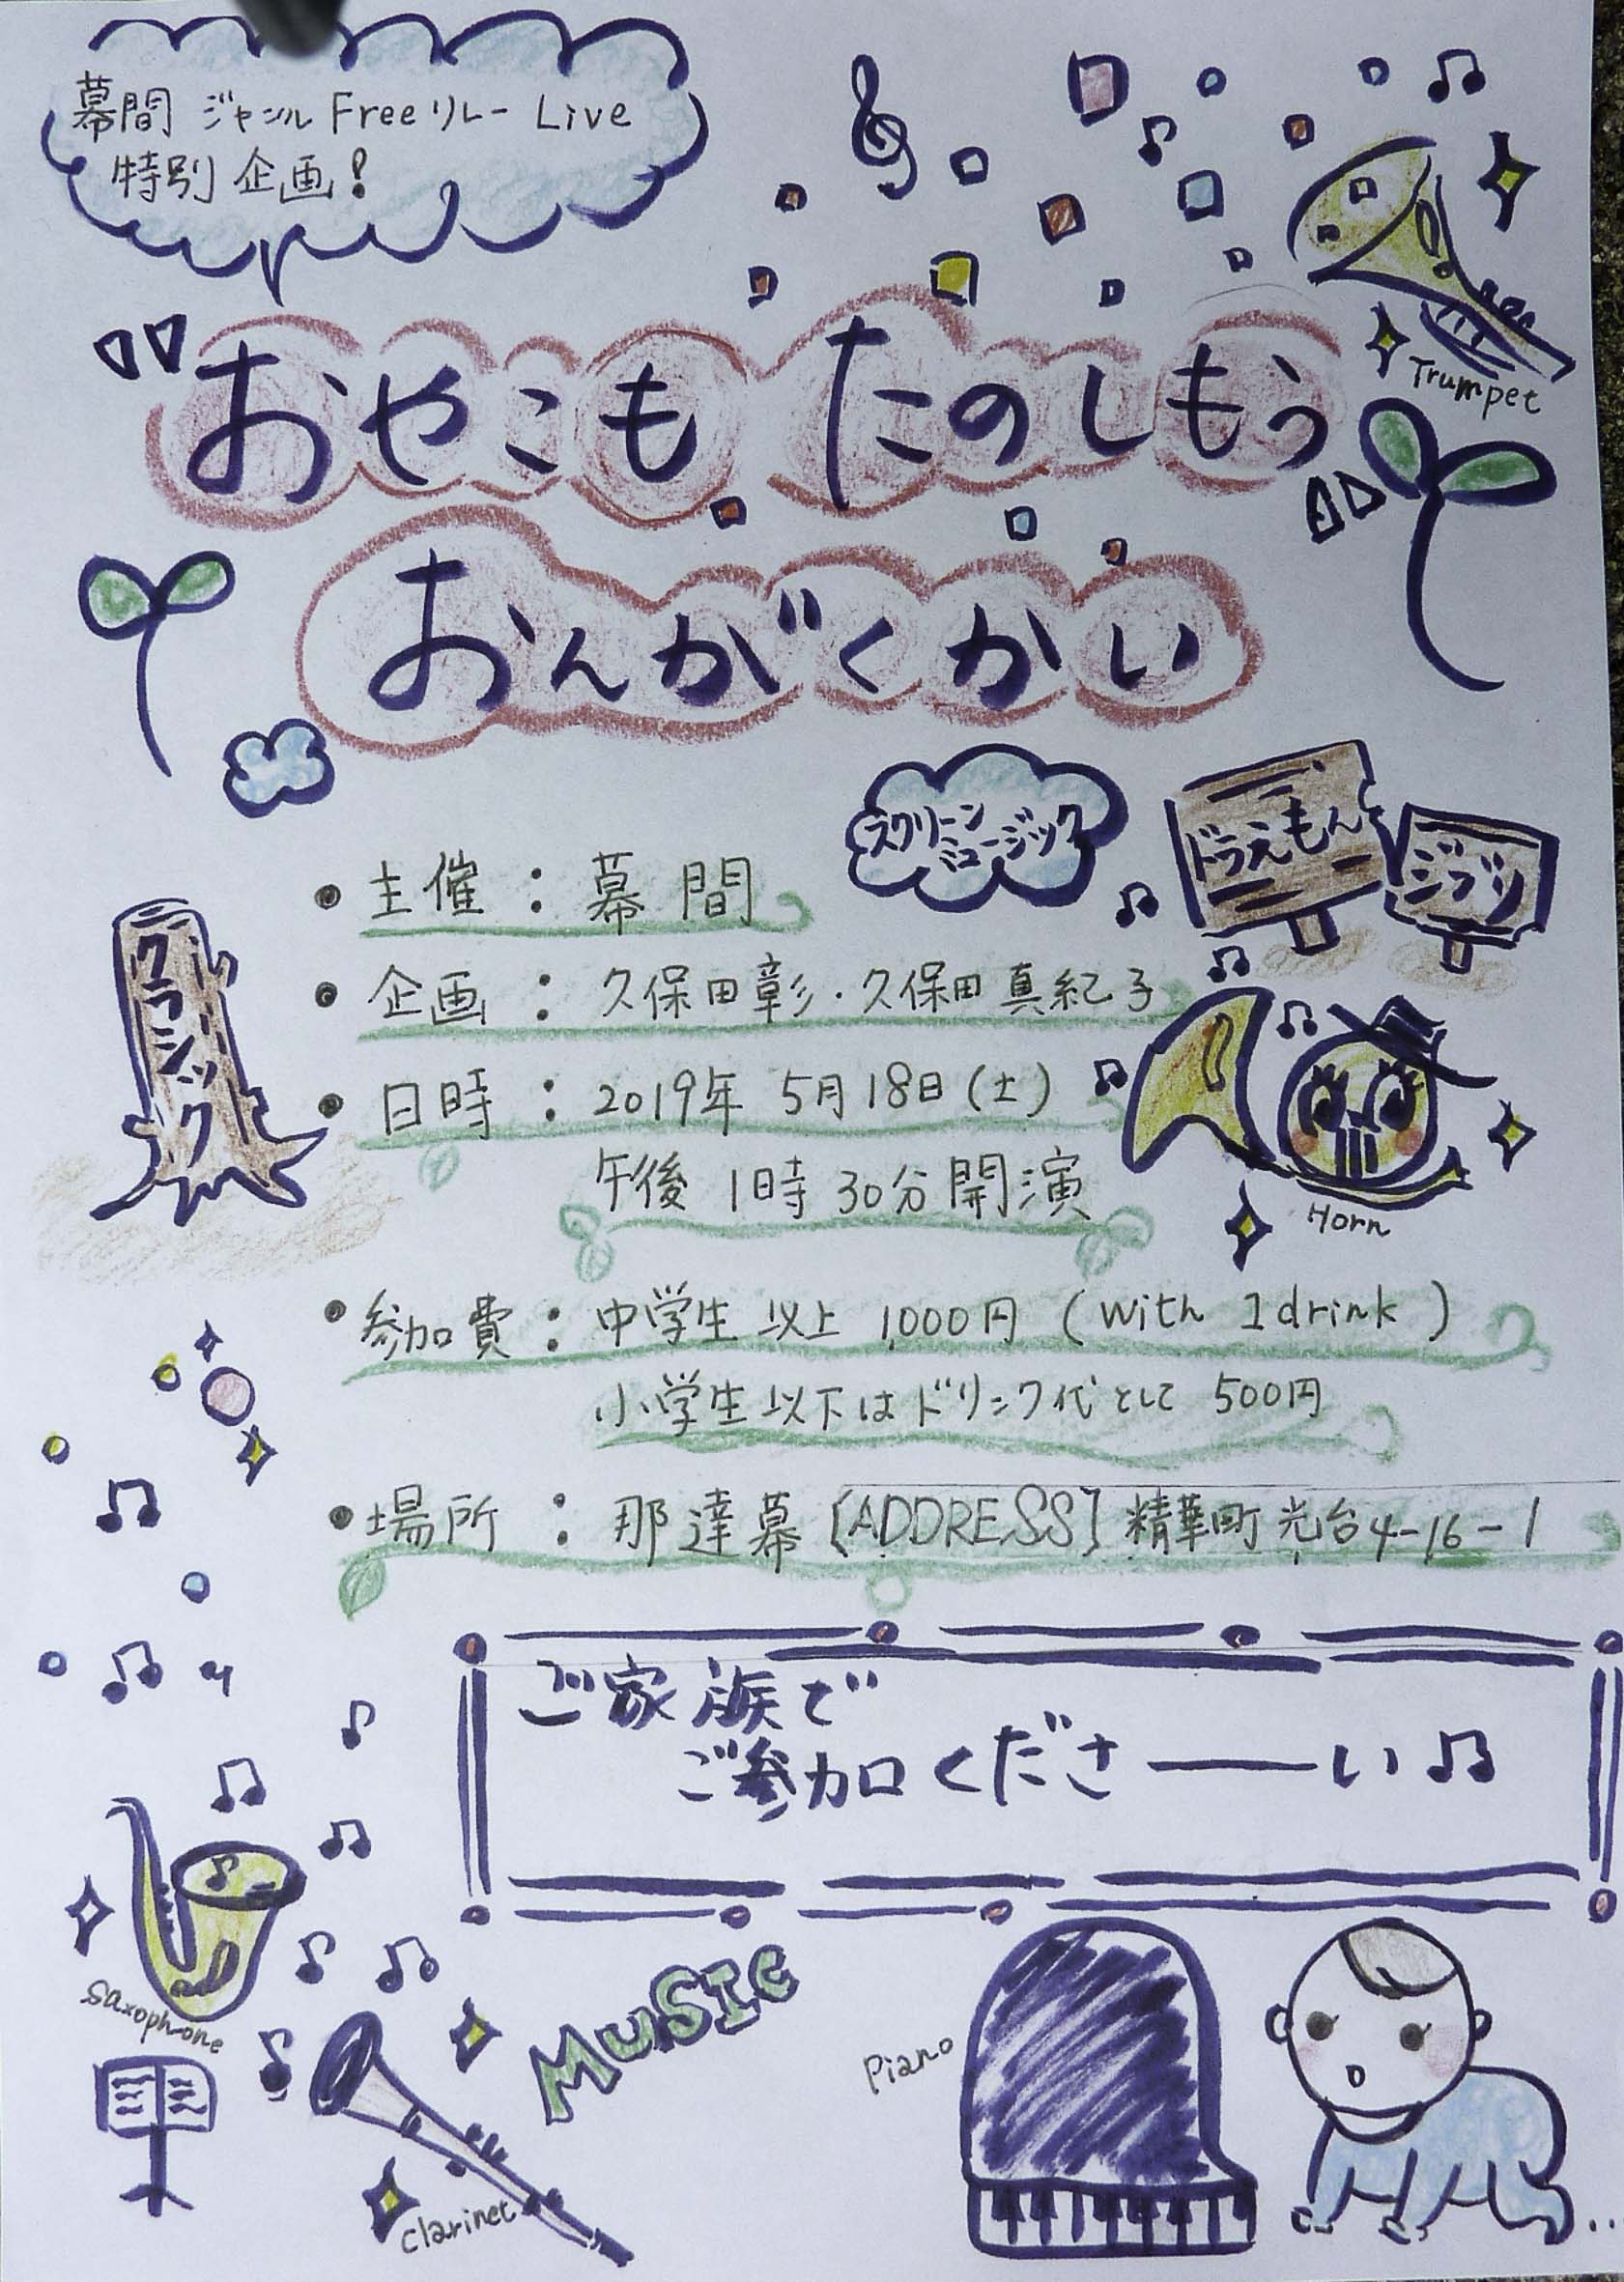 幕間 ジャンル Free リレー Live
特別 企画!
Trumpet
"おやこも たのしもう"
おんがくかい
スクリーン
ミュージック
ドラえもん
ジブリ
クラシック
• 主催 : 幕間
• 企画 : 久保田彰・久保田真紀子
• 日時 : 2019年 5月18日(土)
午後 1時30分開演
Horn
• 参加費 : 中学生以上 1000円 (with 1drink)
小学生以下はドリンク代として 500円
• 場所 : 那達慕 [ADDRESS] 精華町光台4-16-1
ご家族で
ご参加くださーーい♫
saxophone
Music
Piano
clarinet